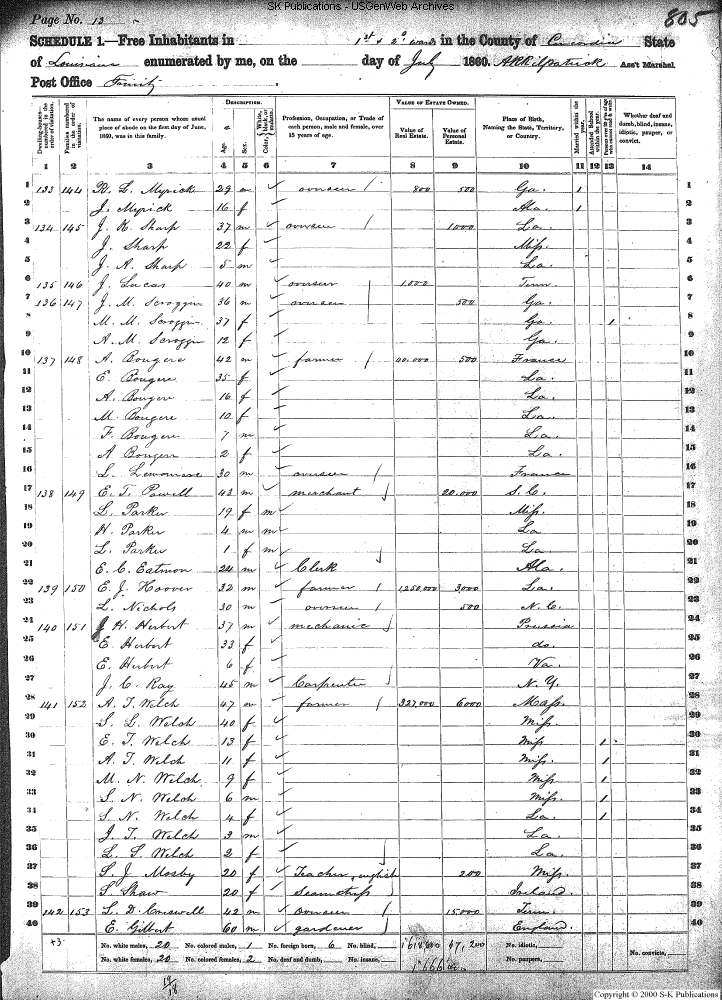 SK Publications - USGenWeb Archives
Page No. 13
805
SCHEDULE 1.—Free Inhabitants in 1st & 2d wards in the County of Concordia State
of Louisiana enumerated by me, on the day of July 1860. Ass't Marshal.
Post Office Trinity
Dwelling-houses numbered in the order of visitation.
Families numbered in the order of visitation.
The name of every person whose usual place of abode on the first day of June, 1860, was in this family.
DESCRIPTION.
Age.
Sex.
Profession, Occupation, or Trade of each person, male and female, over 15 years of age.
VALUE OF ESTATE OWNED.
Value of Real Estate.
Value of Personal Estate.
Place of Birth, Naming the State, Territory, or Country.
Married within the year.
Attended School within the year.
Whether deaf and dumb, blind, insane, idiotic, pauper, or convict.
1 2 3 4 5 6 7 8 9 10 11 12 13 14
1 133 144 L. Myrick 29 m overseer 800 500 Ga. 1 1
2 J. Myrick 16 f Ala. 1 2
3 134 145 J. K. Sharp 37 m overseer 1000 La. 3
4 J. Sharp 22 f Miss. 4
5 J. A. Sharp 5 m La. 5
6 135 146 J. Lucas 40 m overseer 1,000 Tenn 6
7 136 147 J. M. Scroggin 36 m overseer 500 Ga. 7
8 M. M. Scroggin 37 f Ga. 1 8
9 A. M. Scroggin 12 f Ga. 9
10 137 148 A. Bougere 42 m farmer 40,000 500 France 10
11 E. Bougere 35 f La. 11
12 A. Bougere 16 f La. 12
13 M. Bougere 10 f La. 13
14 F. Bougere 7 m La. 14
15 A Bougere 2 f La. 15
16 L. 30 m overseer France 16
17 138 149 E. T. Powell 43 m merchant 20,000 S. C. 17
18 L. Parker 19 f m Miss. 18
19 H. Parker 4 m m La 19
20 L. Parker 1 f m La 20
21 E. C. Eatmon 24 m Clerk Ala. 21
22 139 150 E. J. Hoover 32 m farmer 1,250,000 3,000 La. 22
23 L. Nichols 30 m overseer 500 N. C. 23
24 140 151 J H. Herbert 37 m mechanic Prussia 24
25 E. Herbert 33 f do. 25
26 E. Herbert 6 f Va. 26
27 J. C. Ray 45 m Carpenter N. Y. 27
28 141 152 A. T. Welch 47 m farmer 327,000 6000 Mass. 28
29 S. L. Welch 40 f Miss. 29
30 E. T. Welch 13 f Miss 1 30
31 A. T. Welch 11 f Miss. 1 31
32 M. N. Welch 9 f Miss 1 32
33 S. N. Welch 6 m Miss. 1 33
34 S. N. Welch 4 f La. 1 34
35 J. T. Welch 3 m La. 35
36 L. S. Welch 2 f La. 36
37 S. J. Mosby 20 f Teacher, english 200 Miss. 37
38 S. Shaw 20 f Seamstress Ireland 38
39 142 153 L. D. Criswell 42 m overseer 15,000 Tenn. 39
40 E. Gilbert 60 m gardener England. 40
No. white males, 20 No. colored males, 1 No. foreign born, 6 No. blind, 47,200 No. idiotic,
No. white females, 20 No. colored females, 2 No. deaf and dumb, No. insane, No. paupers, No. convicts,
Copyright © 2000 S-K Publications